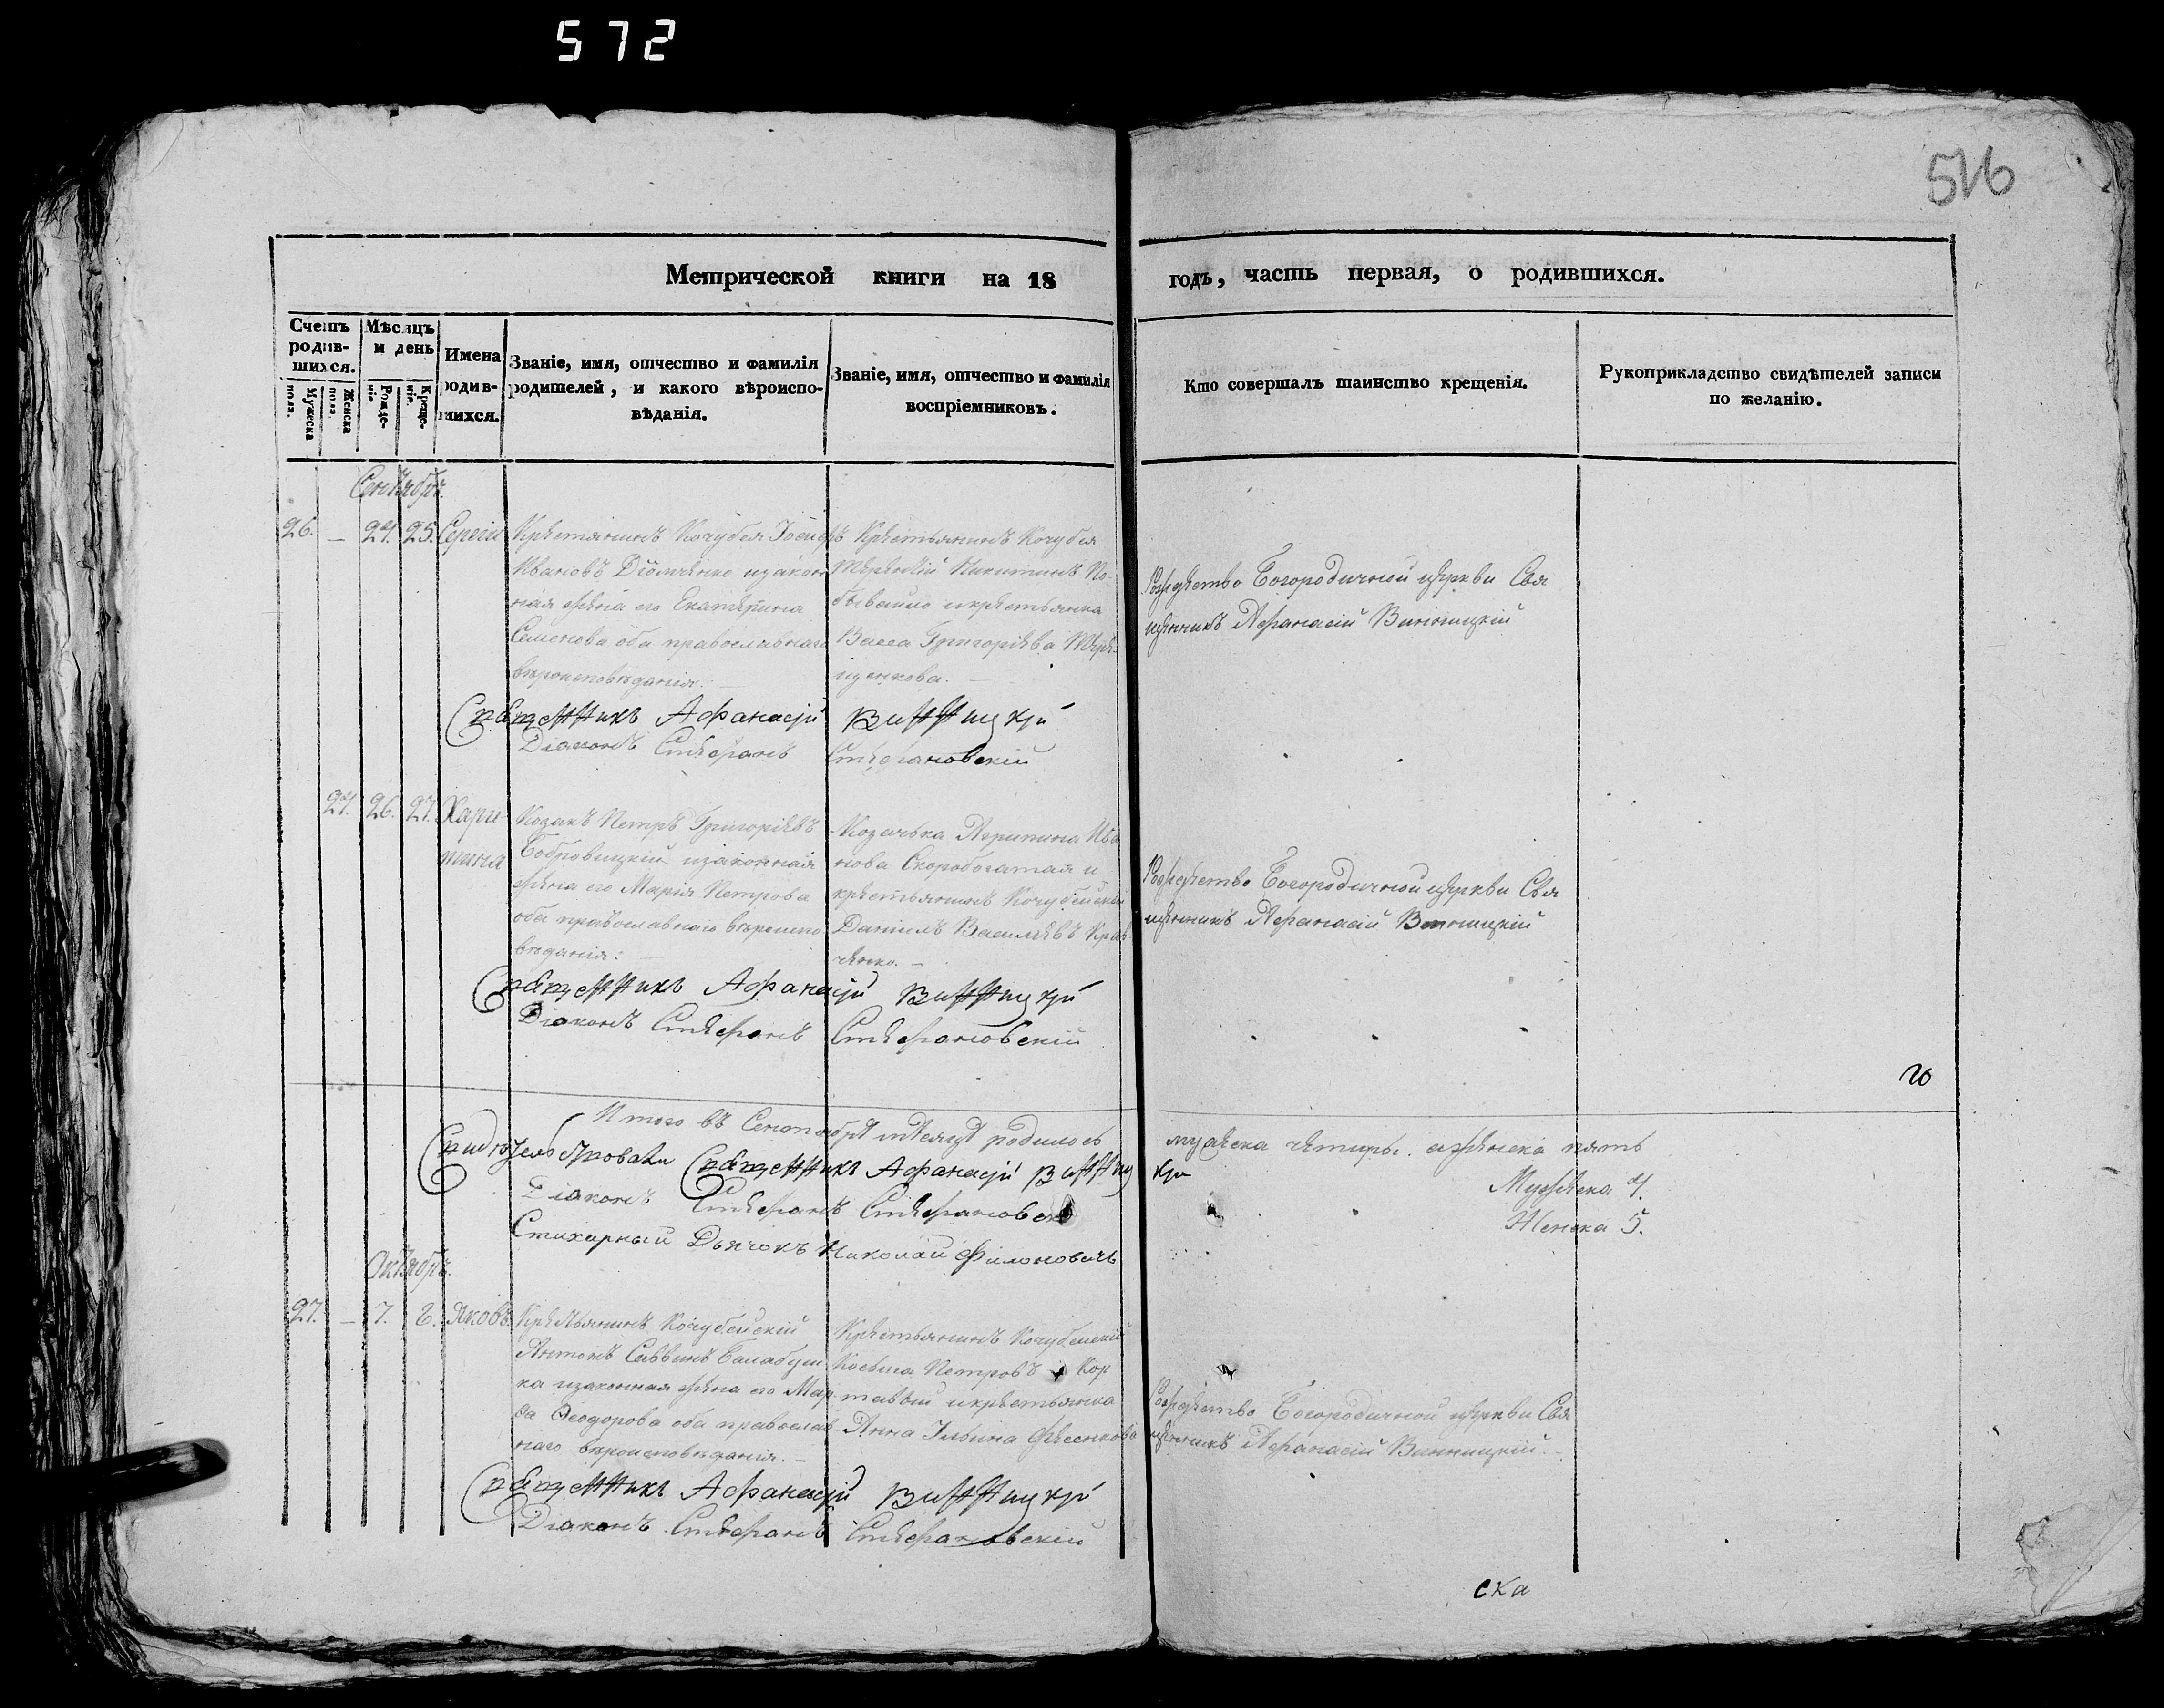 572
516
Метрической книги на 18 годъ, часть первая, о родившихся.
Счетъ родив-шихся.
Мужеска пола.
Женска пола.
Мѣсяцъ и день
Рожде-ніе.
Креще-ніе.
Имена родив-шихся.
Званіе, имя, отчество и фамилія родителей, и какого вѣроиспо-вѣданія.
Званіе, имя, отчество и фамилія воспріемниковъ.
Кто совершалъ таинство крещенія.
Рукоприкладство свидѣтелей записи по желанію.
Сентябрь.
26. — 24. 25. Сергій
Крестянинъ Кочубея Іосифъ
Ивановъ изакон
ная жена его Екатерина
Семенова оба православнаго
вѣроисповѣданія. —
Крестьянинъ Кочубея
Никитинъ По-
бывайло икрестьянка
Васса Григоріева Тере-
щенкова. —
Рождество Богородичной церкви Свя
щенникъ Афанасій Винницкій
Священникъ Афанасій Винницкій
Діаконъ Стефанъ Стефановскій
24. 26. 27. Хари
тина
Козакъ Петръ Григоріевъ
Бобровицкій изаконная
жена его Марія Петрова
оба православнаго вѣроиспо
вѣданія: —
Козачька Агрипина Ива
нова Скоробогатая и
крестьянинъ Кочубейскій
Даніилъ Васильевъ Крав-
ченко. —
Рождество Богородичной церкви Свя
щенникъ Афанасій Винницкій
Священникъ Афанасій Винницкій
Діаконъ Стефанъ Стефановскій
го
Итого въ Сентябрѣ мѣсяцѣ родилось мужеска четыри. аженска пять
Мужеска 4.
Женска 5.
Свидѣтельствовали Священникъ Афанасій Винницкій
Діаконъ Стефанъ Стефановскій
Стихарный Дьячокъ Николай Филоновичъ
Октябрь.
27. — 7. 8. Яковъ.
Крестьянинъ Кочубейскій
Антонъ Саввинъ Балабуш
ка изаконная жена его Мар
Феодорова оба православ
наго вѣроисповѣданія. —
Крестьянинъ Кочубейскій
Косьма Петровъ Кор
тавый икрестьянка
Анна Ильина Фесенкова
Рождество Богородичной церкви Свя
щенникъ Афанасій Винницкій. —
Священникъ Афанасій Винницкій
Діаконъ Стефанъ Стефановскій
ска